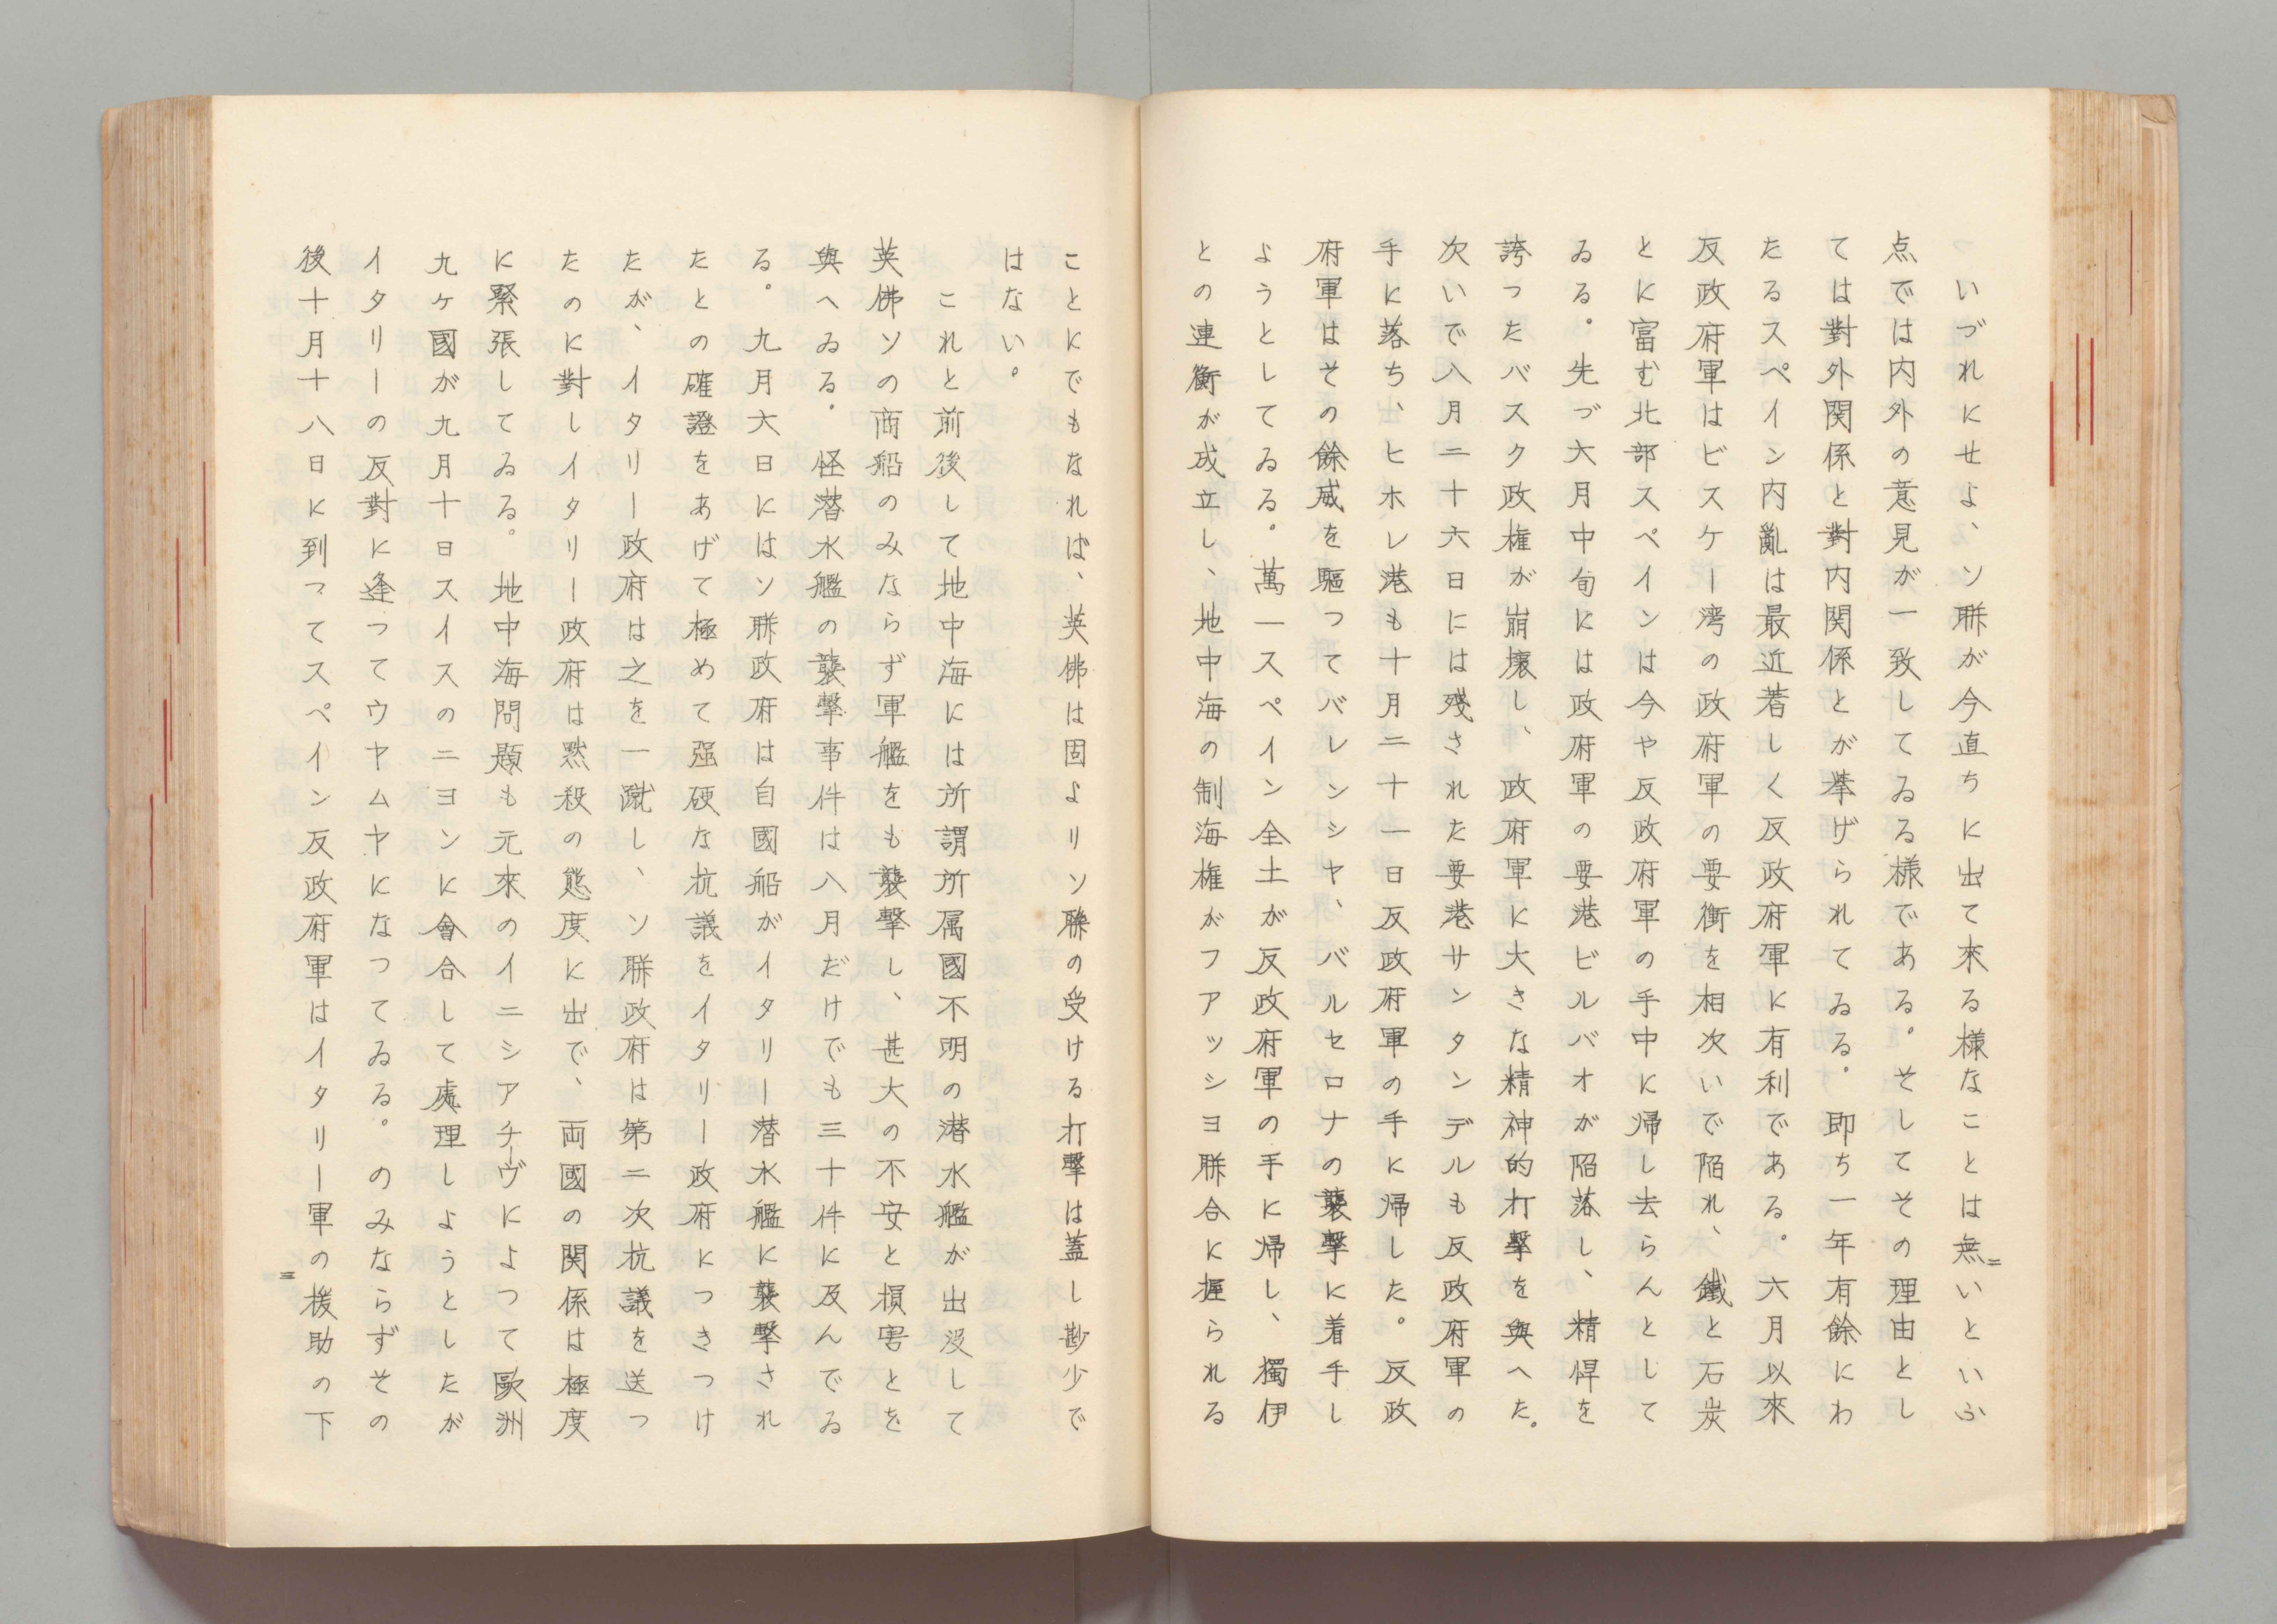 いづれにせよ、ソ聯が今直ちに出て來る樣なことは無いといふ
点では内外の意見が一致してゐる樣である。そしてその理由とし
ては對外関係と對内関係とが挙げられてゐる。即ち一年有餘にわ
たるスペイン内亂は最近著しく反政府軍に有利である。六月以來
反政府軍はビスケー湾の政府軍の要衝を相次いで陥れ、鐵と石炭
とに富む北部スペインは今や反政府軍の手中に帰し去らんとして
ゐる。先づ六月中旬には政府軍の要港ビルバオが陥落し、精悍を
誇ったバスク政権が崩壊し、政府軍に大きな精神的打撃を與へた。
次いで八月二十六日には残された要港サンタンデルも反政府軍の
手に落ち、ヒホレ港も十月二十一日反政府軍の手に帰した。反政
府軍はその餘威を驅ってバレンシヤ、バルセロナの襲撃に着手し
ようとしてゐる。萬一スペイン全土が反政府軍の手に帰し、獨伊
との連衡が成立し、地中海の制海権がファッショ聯合に握られる
二
ことにでもなれば、英佛は固よりソ聯の受ける打撃は蓋し尠少で
はない。
これと前後して地中海には所謂所属國不明の潜水艦が出没して
英佛ソの商船のみならず軍艦をも襲撃し、甚大の不安と損害とを
與へゐる。怪潜水艦の襲撃事件は八月だけでも三十件に及んでゐ
る。九月六日にはソ聯政府は自國船がイタリー潜水艦に襲撃され
たとの確證をあげて極めて强硬な抗議をイタリー政府につきつけ
たが、イタリー政府は之を一蹴し、ソ聯政府は第二次抗議を送つ
たのに對しイタリー政府は黙殺の態度に出で、両國の関係は極度
に緊張してゐる。地中海問題も元來のイニシアチーヴによつて歐洲
九ヶ國が九月十日スイスのニヨンに會合して處理しようとしたが
イタリーの反對に逢つてウヤムヤになつてゐる。のみならずその
後十月十八日に到つてスペイン反政府軍はイタリー軍の援助の下
三